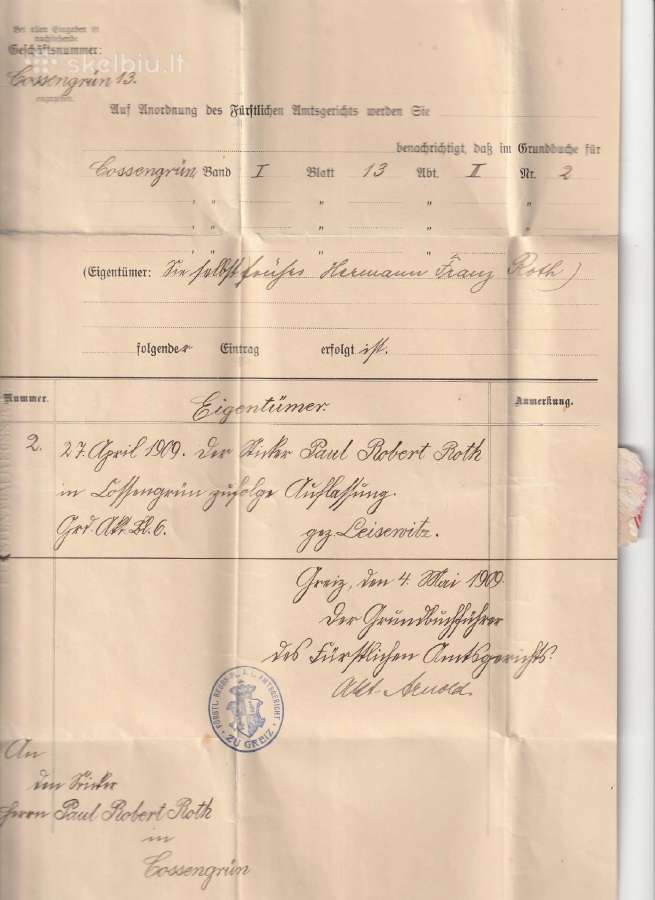 Bei allen Eingaben ist
nachstehende
Geschäftsnummer:
skelbiu.lt
Cossengrün 13.
anzugeben.
Auf Anordnung des Fürstlichen Amtsgerichts werden Sie
benachrichtigt, daß im Grundbuche für
Cossengrün Band I Blatt 13 Abt. II Nr. 2
" " " "
" " " "
" " " "
(Eigentümer: Sie selbst früher Hermann Franz Roth)
folgender Eintrag erfolgt ist.
Nummer. Eigentümer. Anmerkung.
2. 27. April 1909. Der Sticker Paul Robert Roth
in Cossengrün zufolge Auflassung.
Grd. Akt. Bl. 6. gez. Leisewitz.
Greiz, den 4. Mai 1909.
Der Grundbuchführer
des Fürstlichen Amtsgerichts.
Akt. Arnold.
AMTSGERICHT
ZU GREIZ
An
den Sticker
Herrn Paul Robert Roth
in
Cossengrün